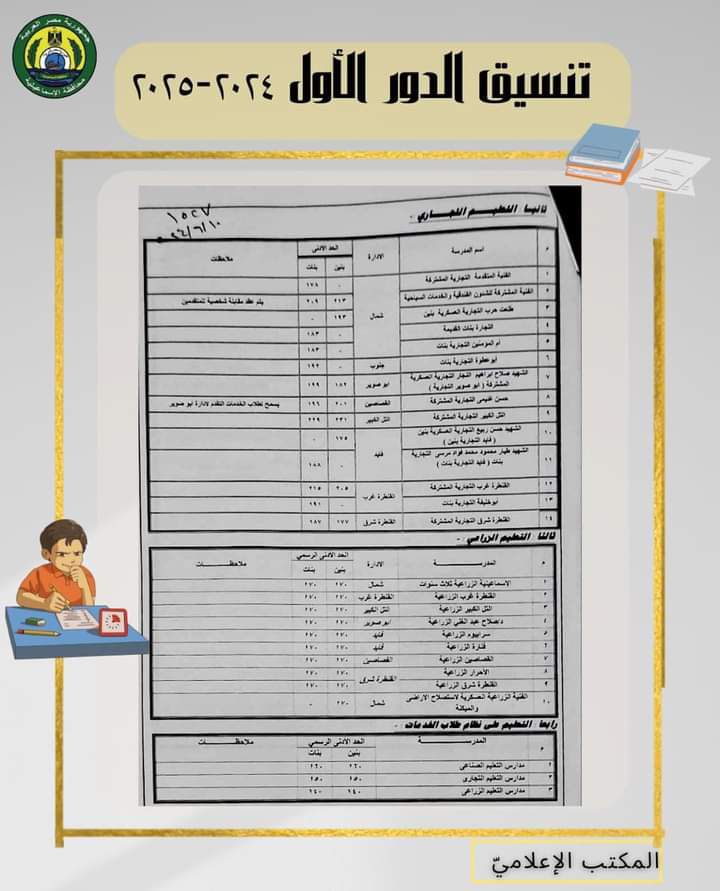 جمهورية مصر العربية
محافظة الإسماعيلية
تنسيق الدور الأول ٢٠٢٤-٢٠٢٥
ثانيا: التعليم التجارى :-
م اسم المدرسة الادارة الحد الأدنى ملاحظات
بنين بنات
١ الفنية المتقدمة التجارية المشتركة شمال ٠ ١٧٨
٢ الفنية المشتركة للشئون الفندقية والخدمات السياحية ٢١٣ ٢٠٩ يتم عقد مقابلة شخصية للمتقدمين
٣ طلعت حرب التجارية العسكرية بنين ١٩٣ ٠
٤ التجارة بنات القديمة ٠ ١٨٣
٥ أم المؤمنين التجارية بنات ٠ ١٨٣
٦ أبو عطوة التجارية بنات جنوب ٠ ١٩٢
٧ الشهيد صلاح ابراهيم النجار التجارية العسكرية
المشتركة ( أبو صوير التجارية ) ابو صوير ١٨٢ ١٩٩
٨ حسن التجارية المشتركة القصاصين ٢٠١ ١٩٦ يسمح لطلاب الخدمات التقدم لادارة ابو صوير
٩ التل الكبير التجارية المشتركة التل الكبير ٢٣١ ٢٢٩
١٠ الشهيد حسن ربيع التجارية العسكرية بنين
( فايد التجارية بنين ) فايد ١٧٥ ٠
١١ الشهيد طيار محمود محمد فؤاد مرسى التجارية
بنات ( فايد التجارية بنات ) ٠ ١٨٨
١٢ القنطرة غرب التجارية المشتركة القنطرة غرب ٢٠٥ ٢١٥
١٣ أبو خليفة التجارية بنات ٠ ١٩١
١٤ القنطرة شرق التجارية المشتركة القنطرة شرق ١٧٧ ١٨٧
ثالثا: التعليم الزراعي :-
م المدرسة الادارة الحد الأدنى الرسمي ملاحظات
بنين بنات
١ الاسماعيلية الزراعية ثلاث سنوات شمال ١٧٠ ١٧٠
٢ القنطرة غرب الزراعية القنطرة غرب ١٧٠ ١٧٠
٣ التل الكبير الزراعية التل الكبير ١٧٠ ١٧٠
٤ د/صلاح عبد الغني الزراعية ابو صوير ١٧٠ ١٧٠
٥ سرابيوم الزراعية فايد ١٧٠ ١٧٠
٦ فنارة الزراعية فايد ١٧٠ ١٧٠
٧ القصاصين الزراعية القصاصين ١٧٠ ١٧٠
٨ الأحرار الزراعية القنطرة شرق ١٧٠ ١٧٠
٩ القنطرة شرق الزراعية ١٧٠ ١٧٠
١٠ الفنية الزراعية العسكرية لاستصلاح الاراضى
والميكنة شمال ١٧٠ ٠
رابعا: التعليم على نظام طلاب الخدمات :-
م المدرســـــة الحد الأدنى الرسمي ملاحظات
بنين بنات
مدارس التعليم الصناعى
٢ مدارس التعليم التجارى ١٥٠ ١٥٠
٣ مدارس التعليم الزراعى ١٤٠ ١٤٠
المكتب الإعلاميّ